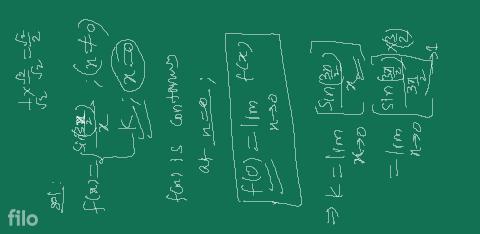 1/√2 × √2/√2 = √2/2
sol:
f(x) = { sin(3x/2)/x ; (x≠0)
K ; x=0
f(x) is continous
at x=0 ;
f(0) = lim x→0 f(x)
⇒ K = lim x→0 [sin(3x/2)/x]
= lim x→0 [sin(3x/2)/(3x/2)] × 3/2
filo